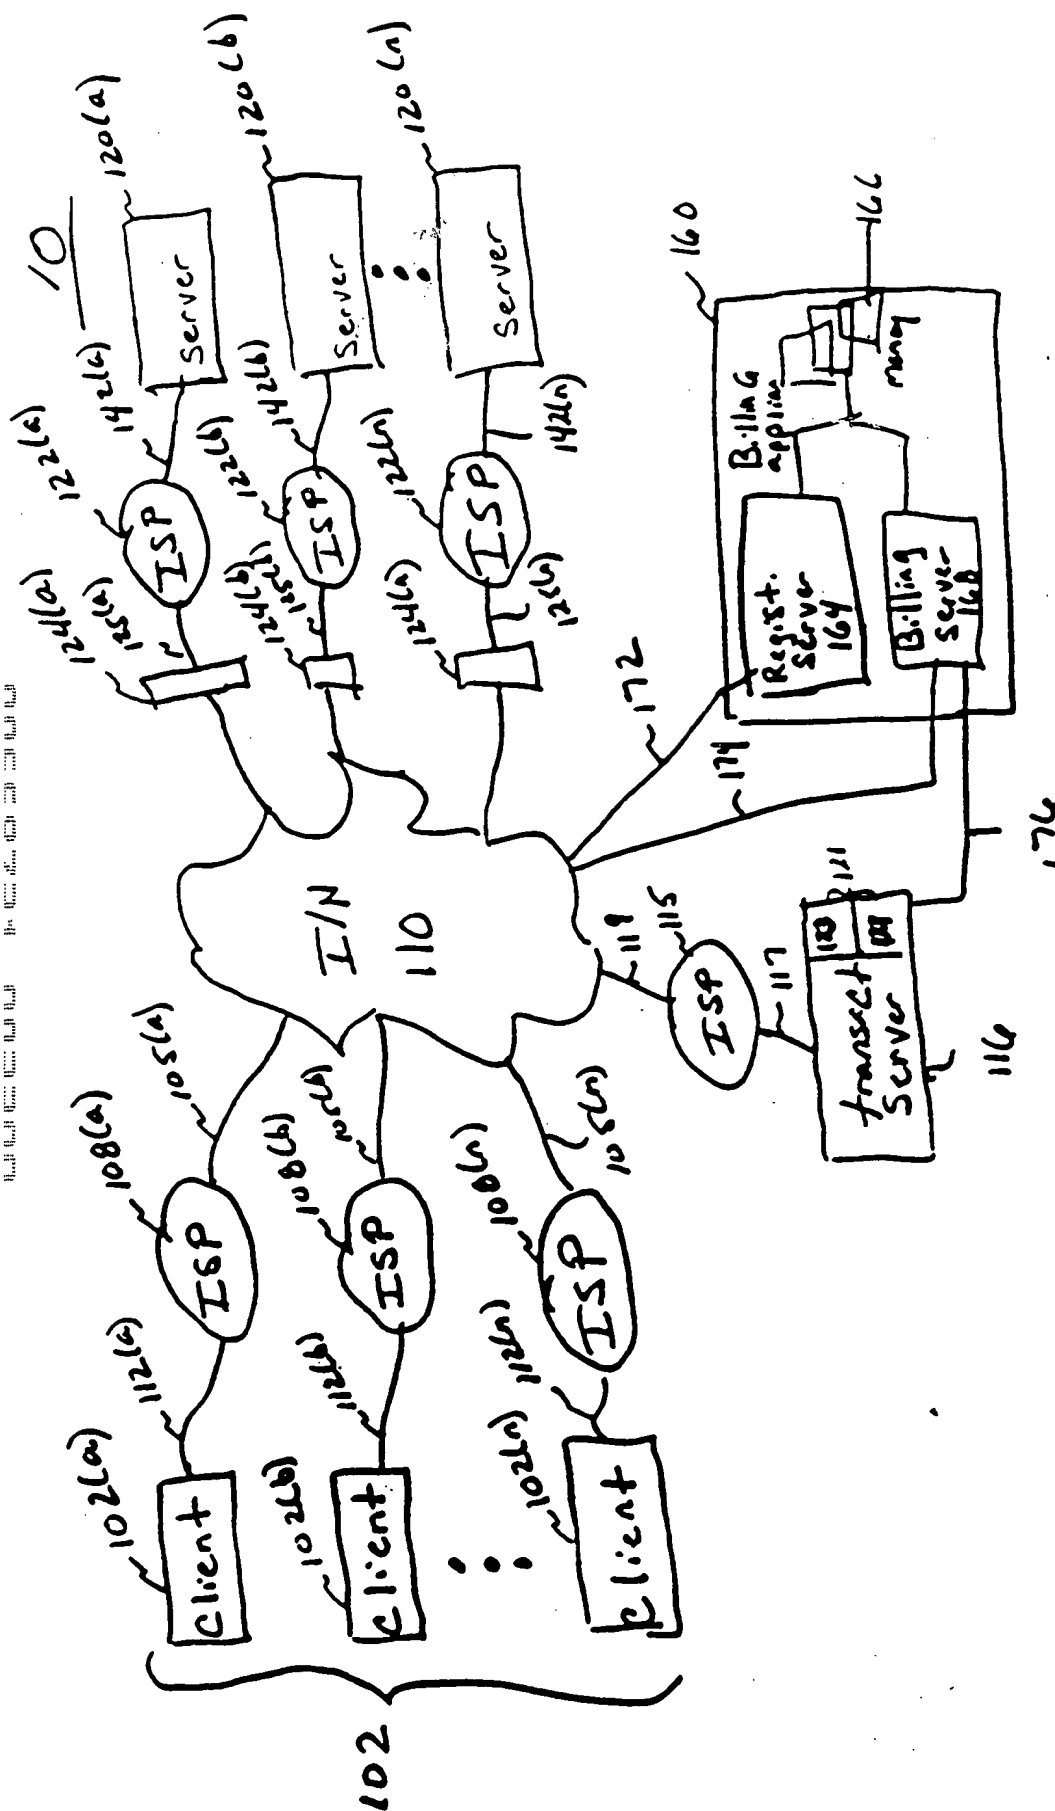 10
102
102(a)
Client
112(a)
108(a)
ISP
105(a)
102(b)
Client
112(b)
108(b)
ISP
105(b)
102(n)
Client
112(n)
108(n)
ISP
105(n)
I/N
110
124(a)
125(a)
122(a)
ISP
142(a)
120(a)
Server
124(b)
122(b)
ISP
142(b)
120(b)
Server
124(n)
125(n)
122(n)
ISP
142(n)
120(n)
Server
119
115
ISP
117
transact
Server
116
121
123
172
174
176
160
Regist.
Server
164
Billing
Server
168
Billing
applian
166